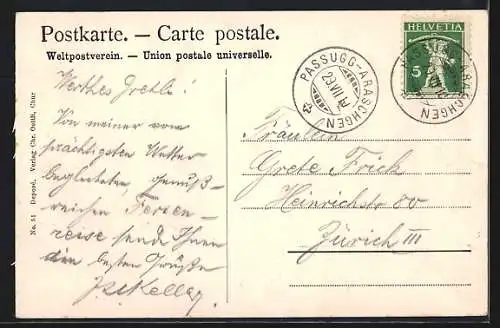 Postkarte. — Carte postale.
Weltpostverein. — Union postale universelle.
HELVETIA
5
PASSUGG-ARASCHGEN
29.VII.
ARASCHGEN
No. 51 Depond. Verlag Chr. Outth, Chur
Werthes Gretli!
Von meiner vom
prächtigsten Wetter
begleiteten, genuß-
reichen Ferien-
reise sende Ihnen
die besten Grüße
Keller
Fräulein
Grete Frich
Heinrichstr 80
Zürich III